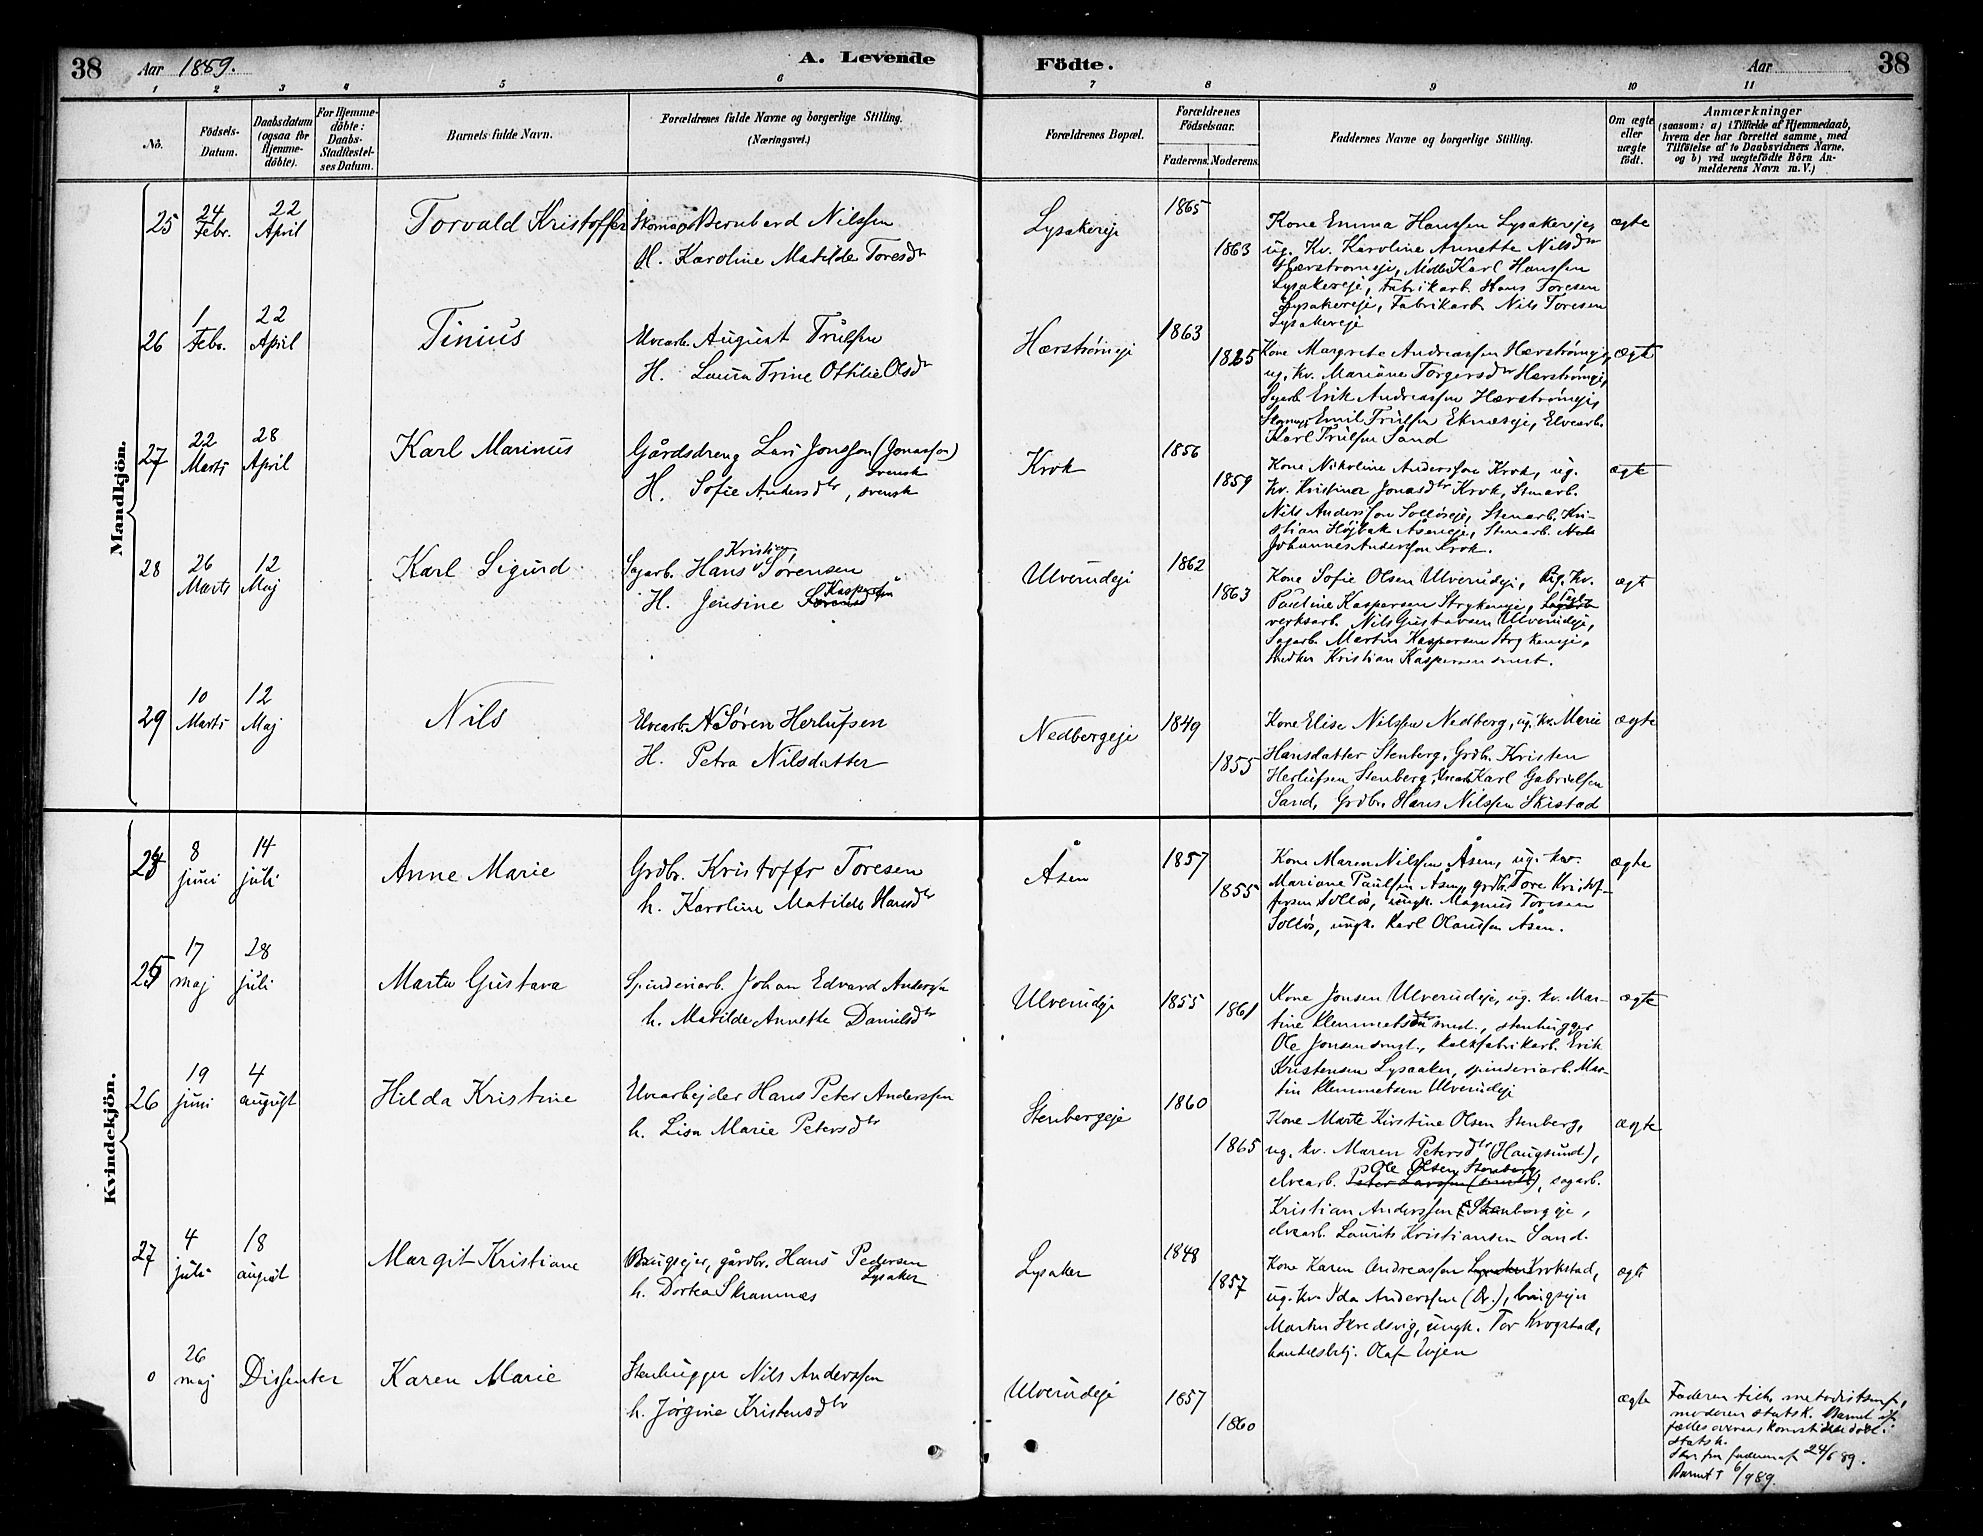 38 Aar 1889. A. Levende Födte. Aar 38
1 2 3 4 5 6 7 8 9 10 11
No.
Födsels-Datum.
Daabsdatum (ogsaa for Hjemme-döbte).
For Hjemme-döbte: Daabs-Stadfæstel-ses Datum.
Barnets fulde Navn.
Forældrenes fulde Navne og borgerlige Stilling. (Næringsvei.)
Forældrenes Bopæl.
Forældrenes Födselsaar.
Faderens. Moderens.
Faddernes Navne og borgerlige Stilling.
Om ægte eller uægte födt.
Anmærkninger
(saasom: a) i Tilfælde af Hjemmedaab,
hvem der har forrettet samme, med
Tilföielse af to Daabsvidners Navne,
og b) ved uægtefödte Börn An-
melderens Navn m. V.)
Mandkjön.
25 24 Febr. 22 April Torvald Kristoffer
Bernhard Nilssen
H. Karoline Matilde Toresdtr
Lysakereje 1865 1863
Kone Emma Hanssen Lysakereje,
ug. Kv. Karoline Annette Nilsdtr
Hærstrømeje, Karl Hanssen
Lysakereje, Fabrikarb. Hans Toresen
Lysakereje, Fabrikarb. Nils Toresen
Lysakereje
ægte
26 1 Febr. 22 April Tinius
Elvearb. August Trulsen
H. Laura Trine Ottilie Olsdtr
Hærstrømeje 1863 1865
Kone Margrete Andreassen Hærstrømeje,
ug. Kv. Mariane Torgersdtr Hærstrømeje,
Sagarb. Erik Andreassen Hærstrømeje,
Emil Trulsen Eknæseje, Elvearb.
Karl Trulsen Sand
ægte
27 22 Marts 28 April Karl Marinus
Gårdsdreng Lars Jonsson (Jonasson)
svensk
H. Sofie Andersdtr, svensk
Krok 1856 1859
Kone Nikoline Anderssen Krok, ug.
Kv. Kristina Jonasdtr Krok, Stenarb.
Nils Anderssen Solløseje, Stenarb. Kri-
stian Højbak Åseneje, Stenarb. Nils
Johannes Anderssen Krok.
ægte
28 26 Marts 12 Maj Karl Sigurd
Kristian
Sagarb. Hans Sørensen
Kaspersen
H. Jensine Sørensdtr
Ulverudeje 1862 1863
Kone Sofie Olsen Ulverudeje, Ug. Kv.
Pauline Kaspersen Strykeneje, Tegl-
verksarb. Nils Gustavsen Ulverudeje,
Sagarb. Martin Kaspersen Strykeneje,
Snedker Kristian Kaspersen smst.
ægte
29 10 Marts 12 Maj Nils
Elvearb. Søren Herlufsen
H. Petra Nilsdatter
Nedbergeje 1849 1855
Kone Elise Nilssen Nedberg, ug. Kv. Marie
Hansdatter Stenberg, Grdbr. Kristen
Herlufsen Stenberg, Elvearb. Karl Gabrielsen
Sand, Grdbr. Hans Nilssen Skistad
ægte
Kvindekjön.
24 8 juni 14 juli Anne Marie
Grdbr. Kristoffer Toresen
h. Karoline Matilde Hansdtr
Åsen 1857 1855
Kone Maren Nilssen Åsen, ug. kv.
Mariane Paulsen Åsen, grdb. Tore Kristof-
fersen Solløs, ungk. Magnus Toresen
Solløs, ungk. Karl Olaussen Åsen.
ægte
25 17 maj 28 juli Marta Gustava
Spinderiarb. Johan Edvard Anderssen
h. Matilde Annette Danielsdtr
Ulverudeje 1855 1861
Kone Jonsen Ulverudeje, ug. kv. Mar-
tine Klemmetsdtr smst., stenhugger
Ole Jonsen smst., kalkfabrikarb. Erik
Kristensen Lysaker, spinderiarb. Mar-
tin Klemmetsen Ulverudeje
ægte
26 19 juni 4 august Hilda Kristine
Elvearbejder Hans Peter Anderssen
h. Lisa Marie Petersdtr
Stenbergeje 1860 1865
Kone Marte Kirstine Olsen Stenberg,
ug. kv. Maren Petersdtr (Haugsund),
Ole Olsen Stenberg
elvearb. Peter Larssen (smst), sagarb.
Kristian Anderssen Stenbergeje,
elvearb. Laurits Kristiansen Sand.
ægte
27 4 juli 18 august Margit Kristiane
Brugsejer, gårdbr. Hans Pedersen
Lysaker
h. Dortea Skramnæs
Lysaker 1848 1857
Kone Karen Andreassen Lysaker Krokstad,
ug. kv. Ida Anderssen (Dr.), brugsejer
Martin Skredsvig, ungk. Tor Krogstad,
handelsbetj. Olaf
ægte
0 26 maj Dissenter Karen Marie
Stenhugger Nils Anderssen
h. Jørgine Kristensdtr
Ulverudeje 1857 1860
ægte
Faderen tilh. metodistsamf.,
moderen statsk. Barnet
statsk.
24/6 89.
Barnet † 6/9 89.